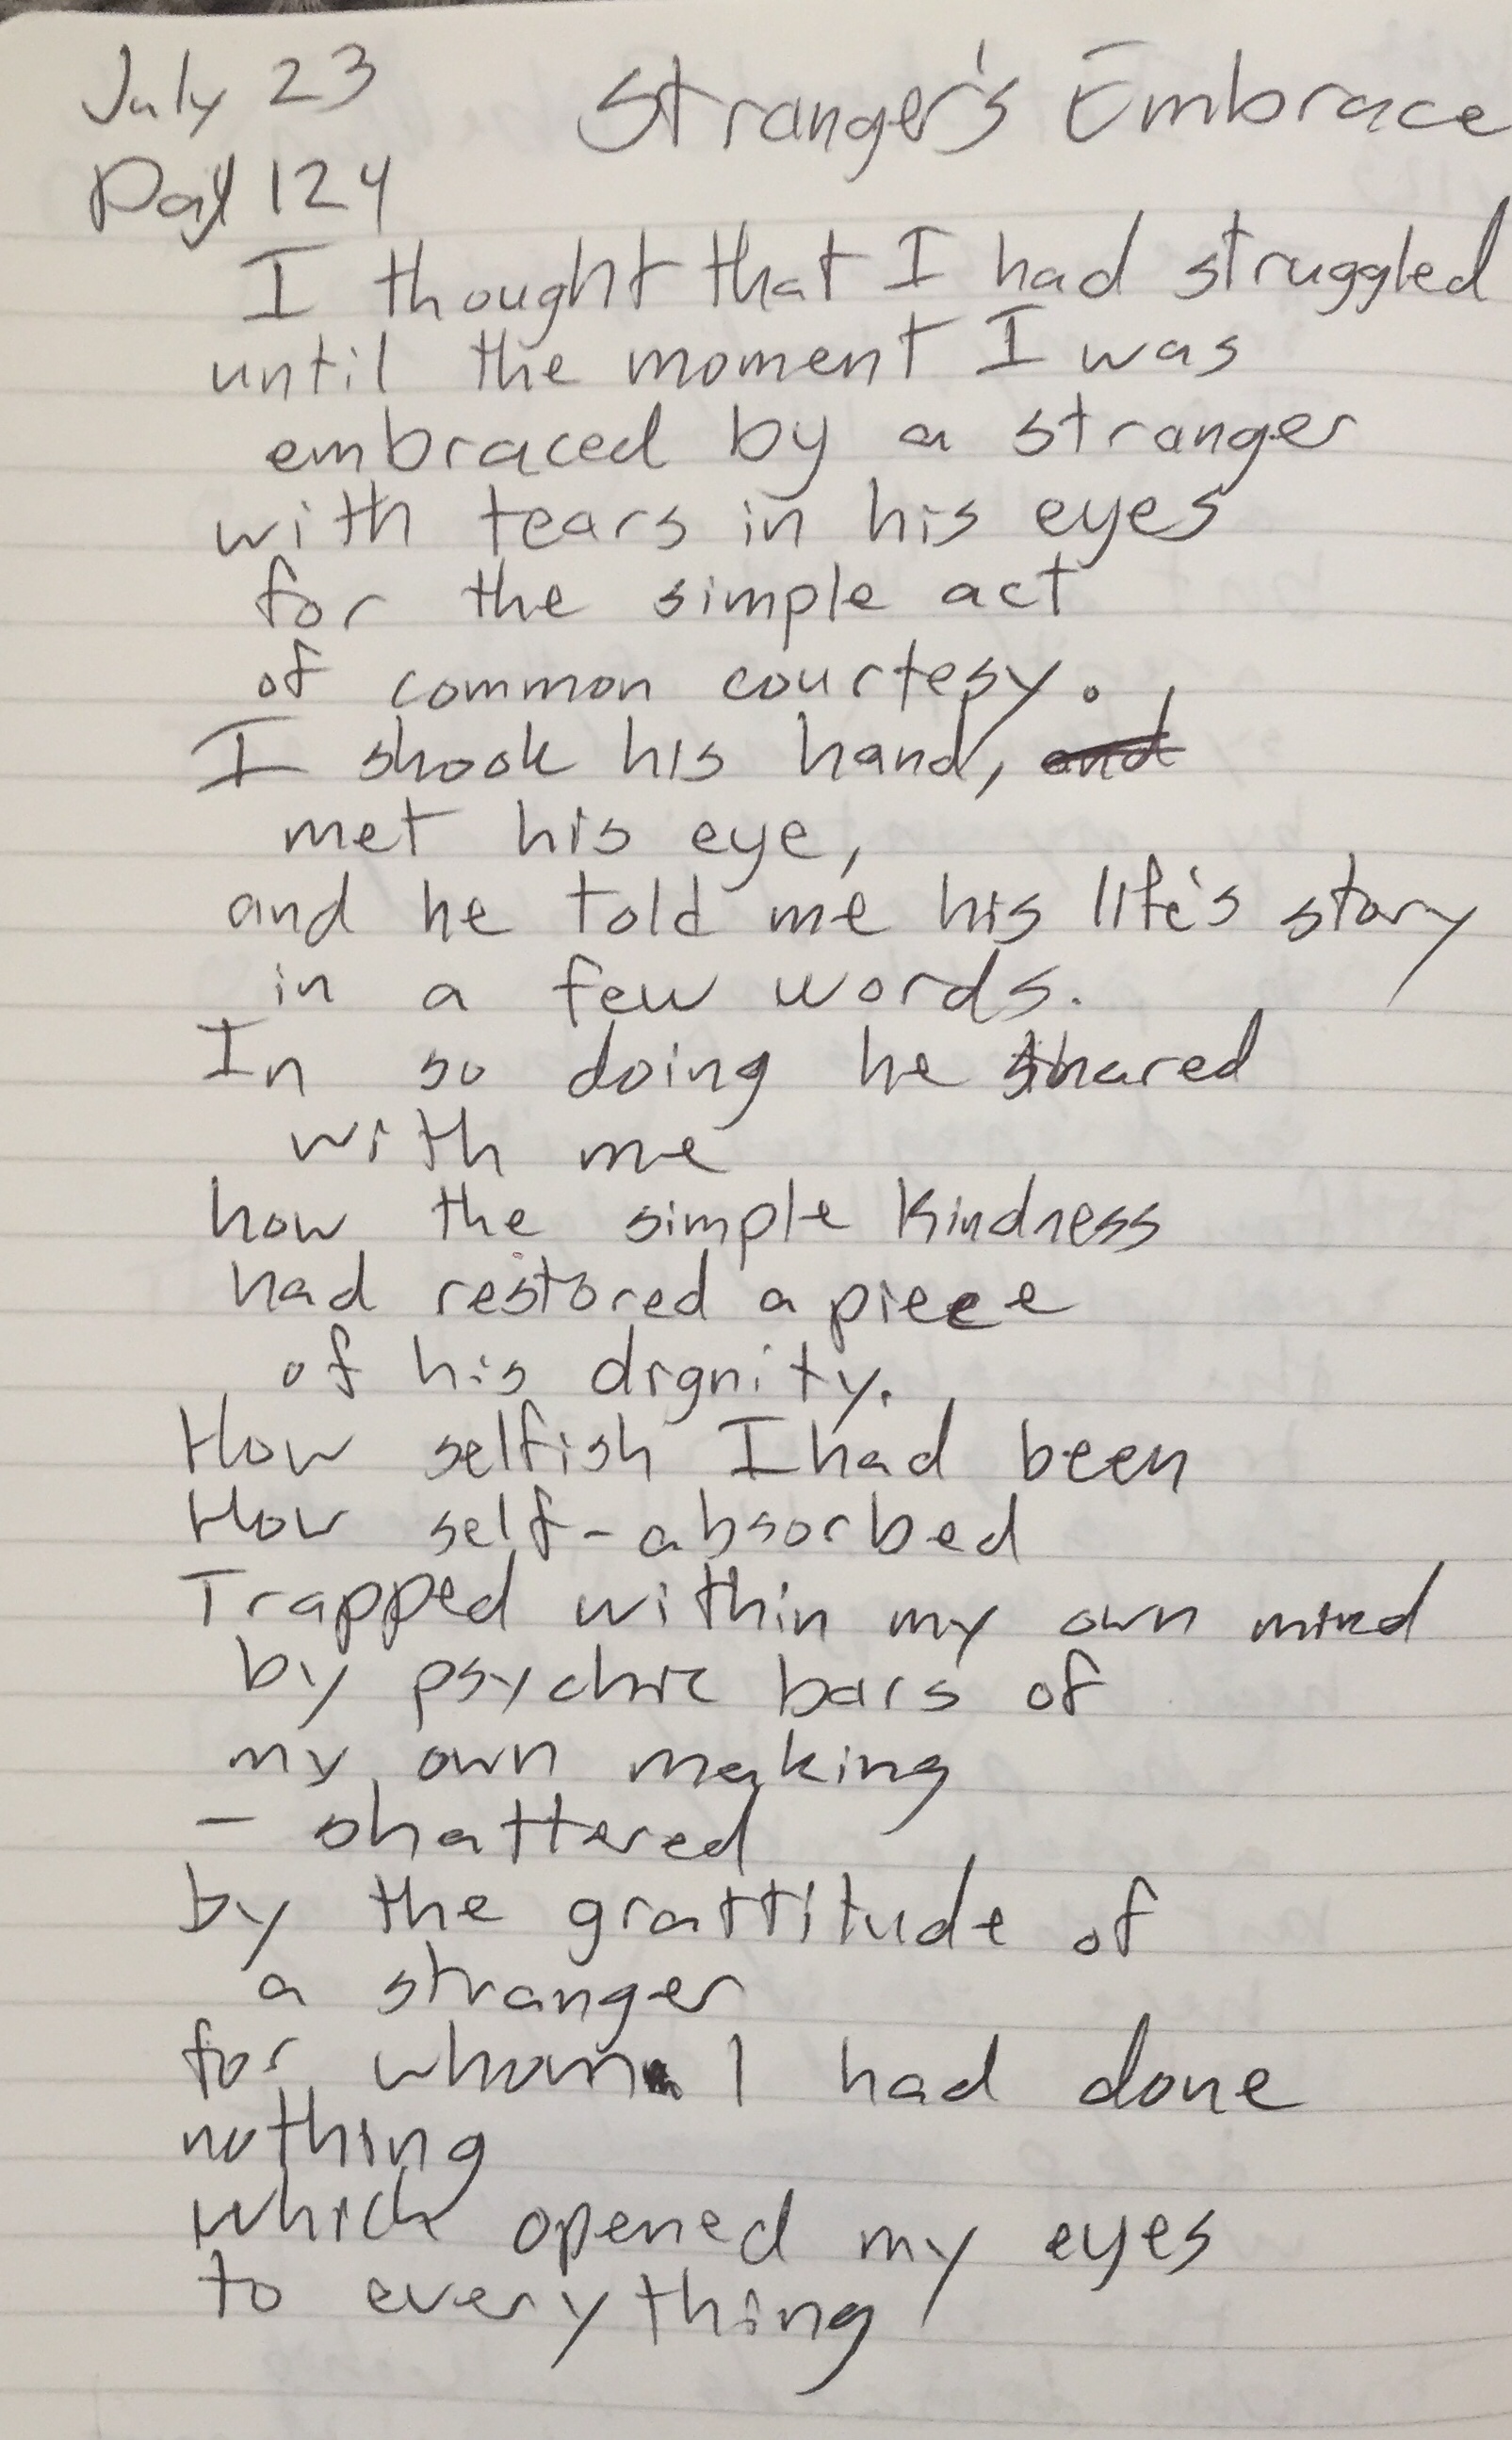 July 23
Stranger's Embrace
Day 124
I thought that I had struggled
until the moment I was
embraced by a stranger
with tears in his eyes
for the simple act
of common courtesy.
I shook his hand, and
met his eye,
and he told me his life's story
in a few words.
In so doing he shared
with me
how the simple kindness
had restored a piece
of his dignity.
How selfish I had been
How self-absorbed
Trapped within my own mind
by psychic bars of
my own making
- shattered
by the grattitude of
a stranger
for whom I had done
nothing
which opened my eyes
to everything